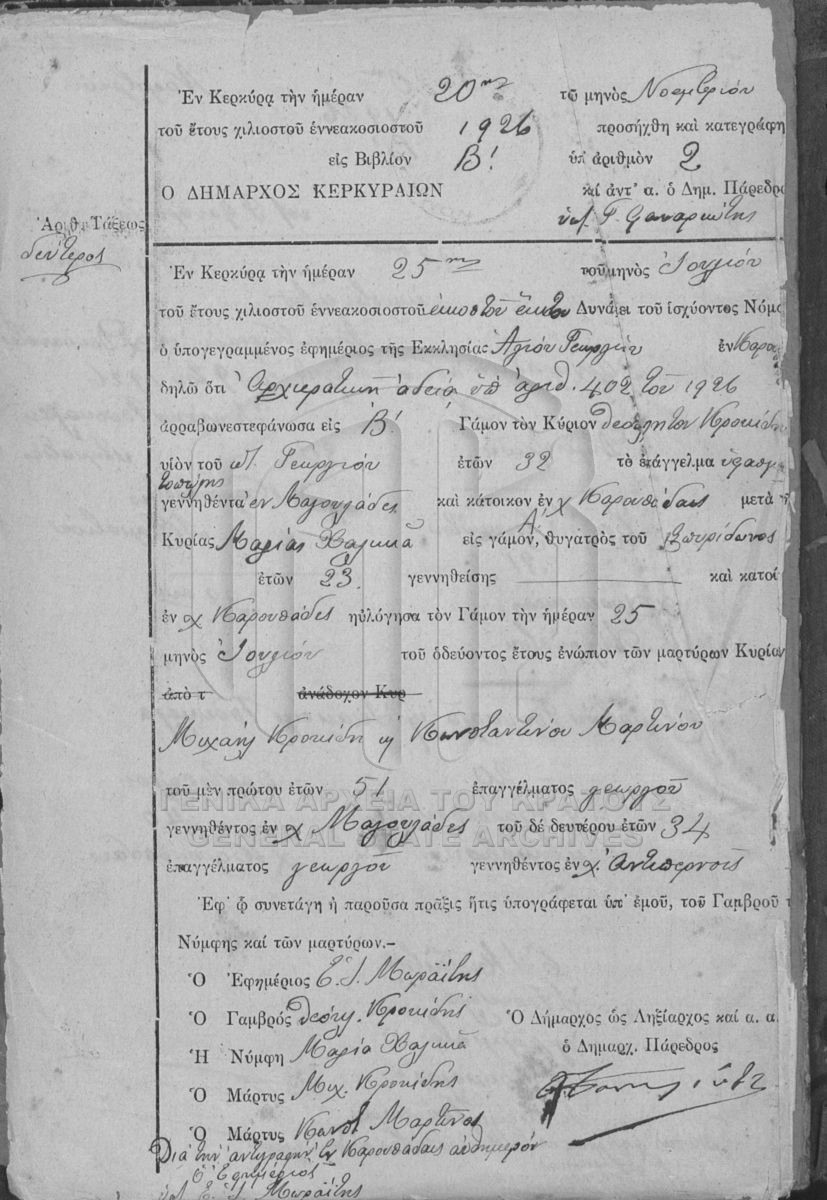 Ἐν Κερκύρᾳ τὴν ἡμέραν 20ην τοῦ μηνὸς Νοεμβρίου
τοῦ ἔτους χιλιοστοῦ ἐννεακοσιοστοῦ 1926 προσήχθη καὶ κατεγράφη
εἰς Βιβλίον Β! ὑπ ἀριθμὸν 2
Ο ΔΗΜΑΡΧΟΣ ΚΕΡΚΥΡΑΙΩΝ καί ἀντ' α. ὁ Δημ. Πάρεδρο
Ἀριθ. Τάξεως
δεύτερος
Ἐν Κερκύρᾳ τὴν ἡμέραν 25ην τοῦ μηνὸς Ἰουλίου
τοῦ ἔτους χιλιοστοῦ ἐννεακοσιοστοῦ εἰκοστοῦ ἕκτου Δυνάμει τοῦ ἰσχύοντος Νόμο
ὁ ὑπογεγραμμένος ἐφημέριος τῆς Ἐκκλησίας Ἁγίου Γεωργίου ἐν Καρου
δηλῶ ὅτι Ἀρχιερατικῇ ἀδείᾳ ὑπ' ἀριθ. 402 τοῦ 1926
ἀρραβωνεστεφάνωσα εἰς Β! Γάμον τὸν Κύριον Θεόκλητον Κροκίδη
υἱὸν τοῦ π. Γεωργίου ἐτῶν 32 τὸ ἐπάγγελμα
γεννηθέντα ἐν Μαγουλάδες καὶ κάτοικον ἐν χ Καρουσάδαις μετὰ τ
Κυρίας Μαρίας Χαλικιᾶ εἰς γάμον Α!, θυγατρὸς τοῦ Σπυρίδωνος
ἐτῶν 23 γεννηθείσης καὶ κατοί
ἐν χ Καρουσάδες ηὐλόγησα τὸν Γάμον τὴν ἡμέραν 25
μηνὸς Ἰουλίου τοῦ ὁδεύοντος ἔτους ἐνώπιον τῶν μαρτύρων Κυρίων
ἀπὸ τ ἀνάδοχον Κυρ
Μιχαήλ Κροκίδη ἢ Κωνσταντίνου Μαρτίνου
τοῦ μὲν πρώτου ἐτῶν 51 ἐπαγγέλματος γεωργοῦ
ΓΕΝΙΚΑ ΑΡΧΕΙΑ ΤΟΥ ΚΡΑΤΟΥΣ
γεννηθέντος ἐν χ Μαγουλάδες τοῦ δέ δευτέρου ἐτῶν 34
GENERAL STATE ARCHIVES
ἐπαγγέλματος γεωργοῦ γεννηθέντος ἐν χ. Ἀντιπερνοῖς
Ἐφ' ᾧ συνετάγη ἡ παροῦσα πρᾶξις ἥτις ὑπογράφεται ὑπ' ἐμοῦ, τοῦ Γαμβροῦ τ
Νύμφης καί τῶν μαρτύρων.–
Ὁ Ἐφημέριος Ε. Ι. Μωραΐτης
Ὁ Γαμβρός Θεόκλ. Κροκίδης Ὁ Δήμαρχος ὡς Ληξίαρχος καί α. α.
Ἡ Νύμφη Μαρία Χαλικιᾶ ὁ Δημαρχ. Πάρεδρος
Ὁ Μάρτυς Μιχ. Κροκίδης
Ὁ Μάρτυς Κωνστ Μαρτίνος
Διά τήν ἀντιγραφήν ἐν Καρουσάδαις αὐθημερόν
Ὁ Ἐφημέριος
Ε. Ι. Μωραΐτης